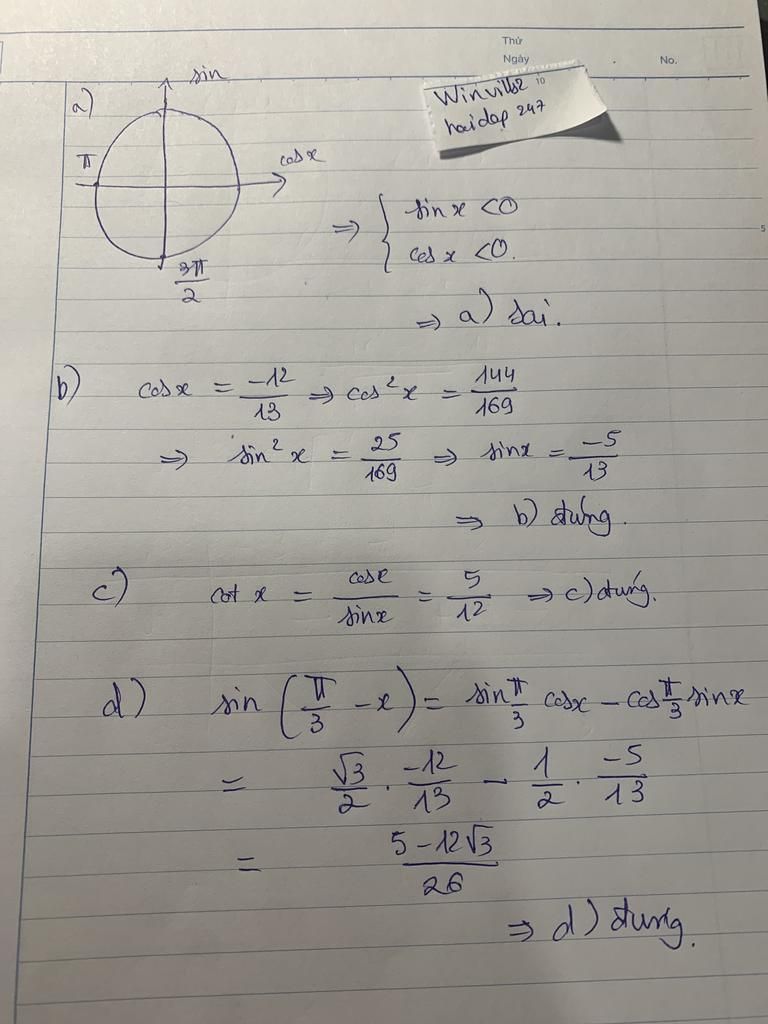 Thứ
Ngày No.
Winvills2 10
hoidap 247
a) sin
π cosx
3π/2
⇒ { sinx <0
cosx <0.
⇒ a) sai.
5
b) cosx = -12/13 ⇒ cos²x = 144/169
⇒ sin²x = 25/169 ⇒ sinx = -5/13
⇒ b) đúng.
c) cot x = cosx/sinx = 5/12 ⇒ c) đúng.
d) sin (π/3 - x) = sin π/3 cosx - cos π/3 sinx
= √3/2 . -12/13 - 1/2 . -5/13
= 5-12√3/26
⇒ d) đúng.